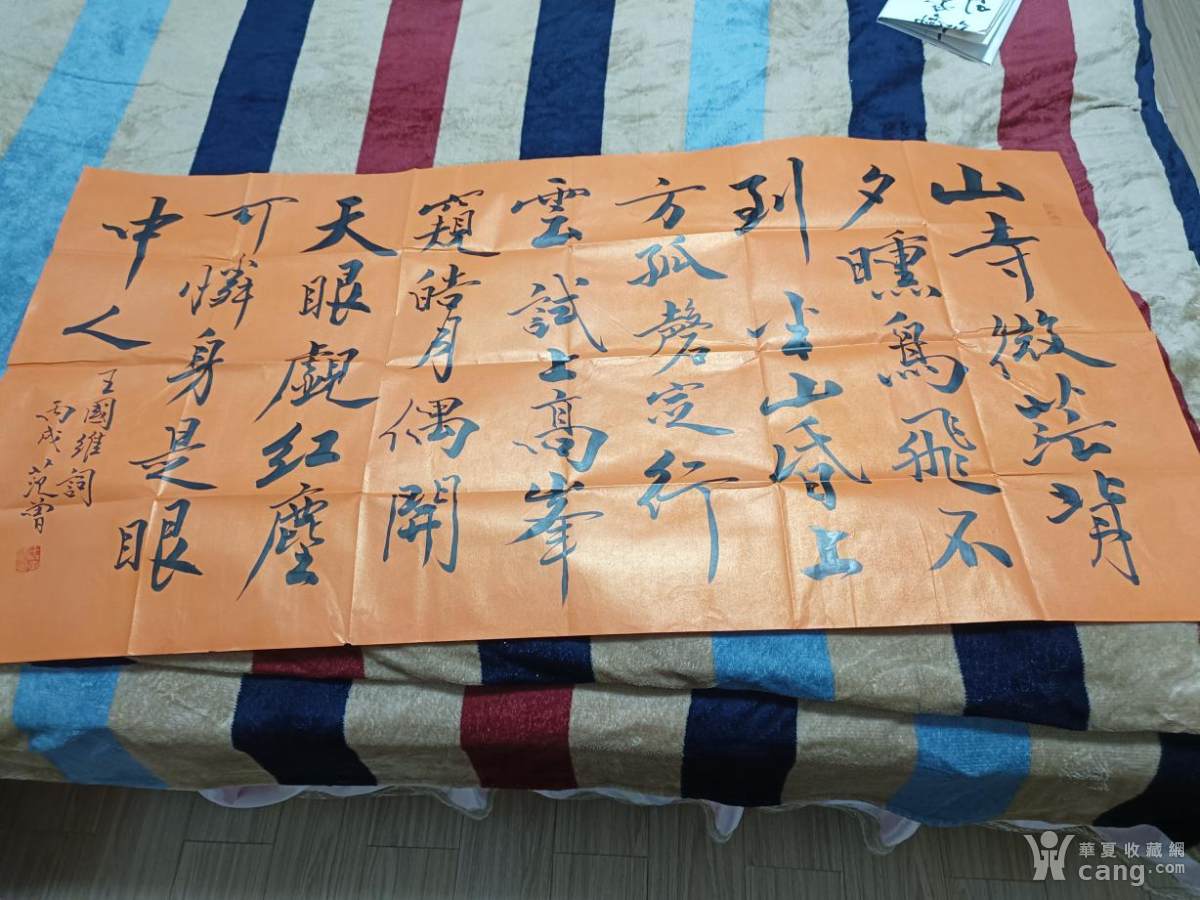 山寺微茫背
夕曛鳥飛不
到半山昏上
方孤磬定行
雲試上高峯
窺皓月偶開
天眼覷紅塵
可憐身是眼
中人
王國維詞
丙戌范曾
華夏收藏網
cang.com